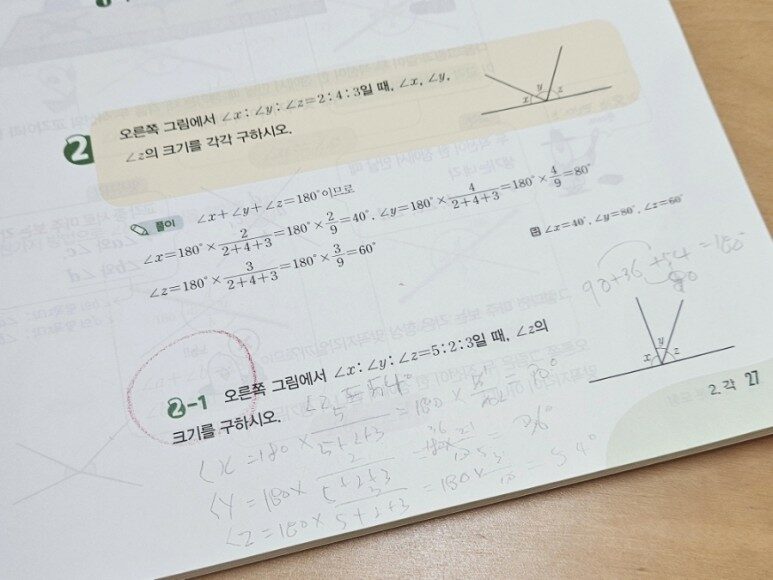 2 오른쪽 그림에서 ∠x : ∠y : ∠z=2 : 4 : 3일 때, ∠x, ∠y,
∠z의 크기를 각각 구하시오.
x y z
풀이 ∠x+∠y+∠z=180°이므로
∠x=180°×2/(2+4+3)=180°×2/9=40°, ∠y=180°×4/(2+4+3)=180°×4/9=80°
∠z=180°×3/(2+4+3)=180°×3/9=60°
답 ∠x=40°, ∠y=80°, ∠z=60°
90+36+54=180°
90
2-1 오른쪽 그림에서 ∠x : ∠y : ∠z=5 : 2 : 3일 때, ∠z의
크기를 구하시오.
x y z
∠z=54°
∠x=180×5/(5+2+3)=180×5/10=90°
∠y=180×2/(5+2+3)=180×2/10=36°
∠z=180×3/(5+2+3)=180×3/10=54°
2. 각 27